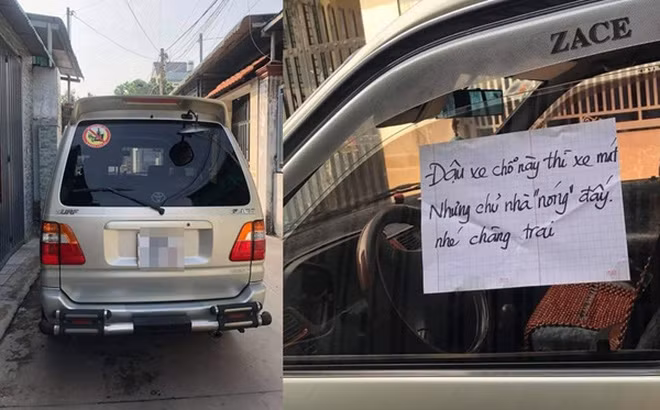 SURF
ZACE
ZACE
Đậu xe chỗ này thì xe mát
Nhưng chủ nhà "nóng" đấy.
nhé chàng trai